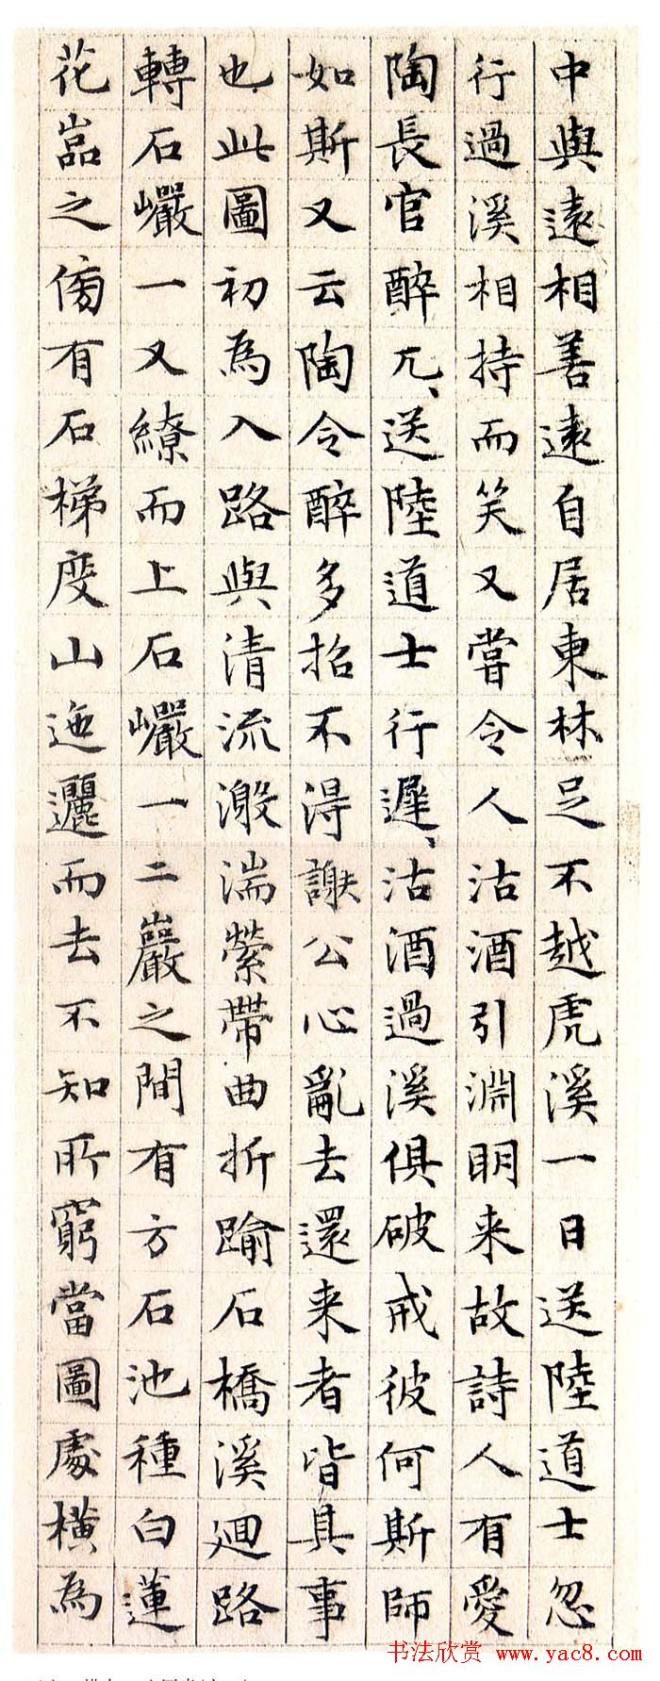 中與遠相善遠自居東林足不越虎溪一日送陸道士忽
行過溪相持而笑又嘗令人沽酒引淵明来故詩人有愛
陶長官醉兀、送陸道士行遲、沽酒過溪俱破戒彼何斯師
如斯又云陶令醉多招不得謝公心亂去還来者皆具事
也此圖初為入路與清流激湍縈帶曲折踰石橋溪廻路
轉石巖一又繚而上石巖一二巖之間有方石池種白蓮
花嵓之傍有石梯度山迤邐而去不知所窮當圖處横為
书法欣赏 www.yac8.com